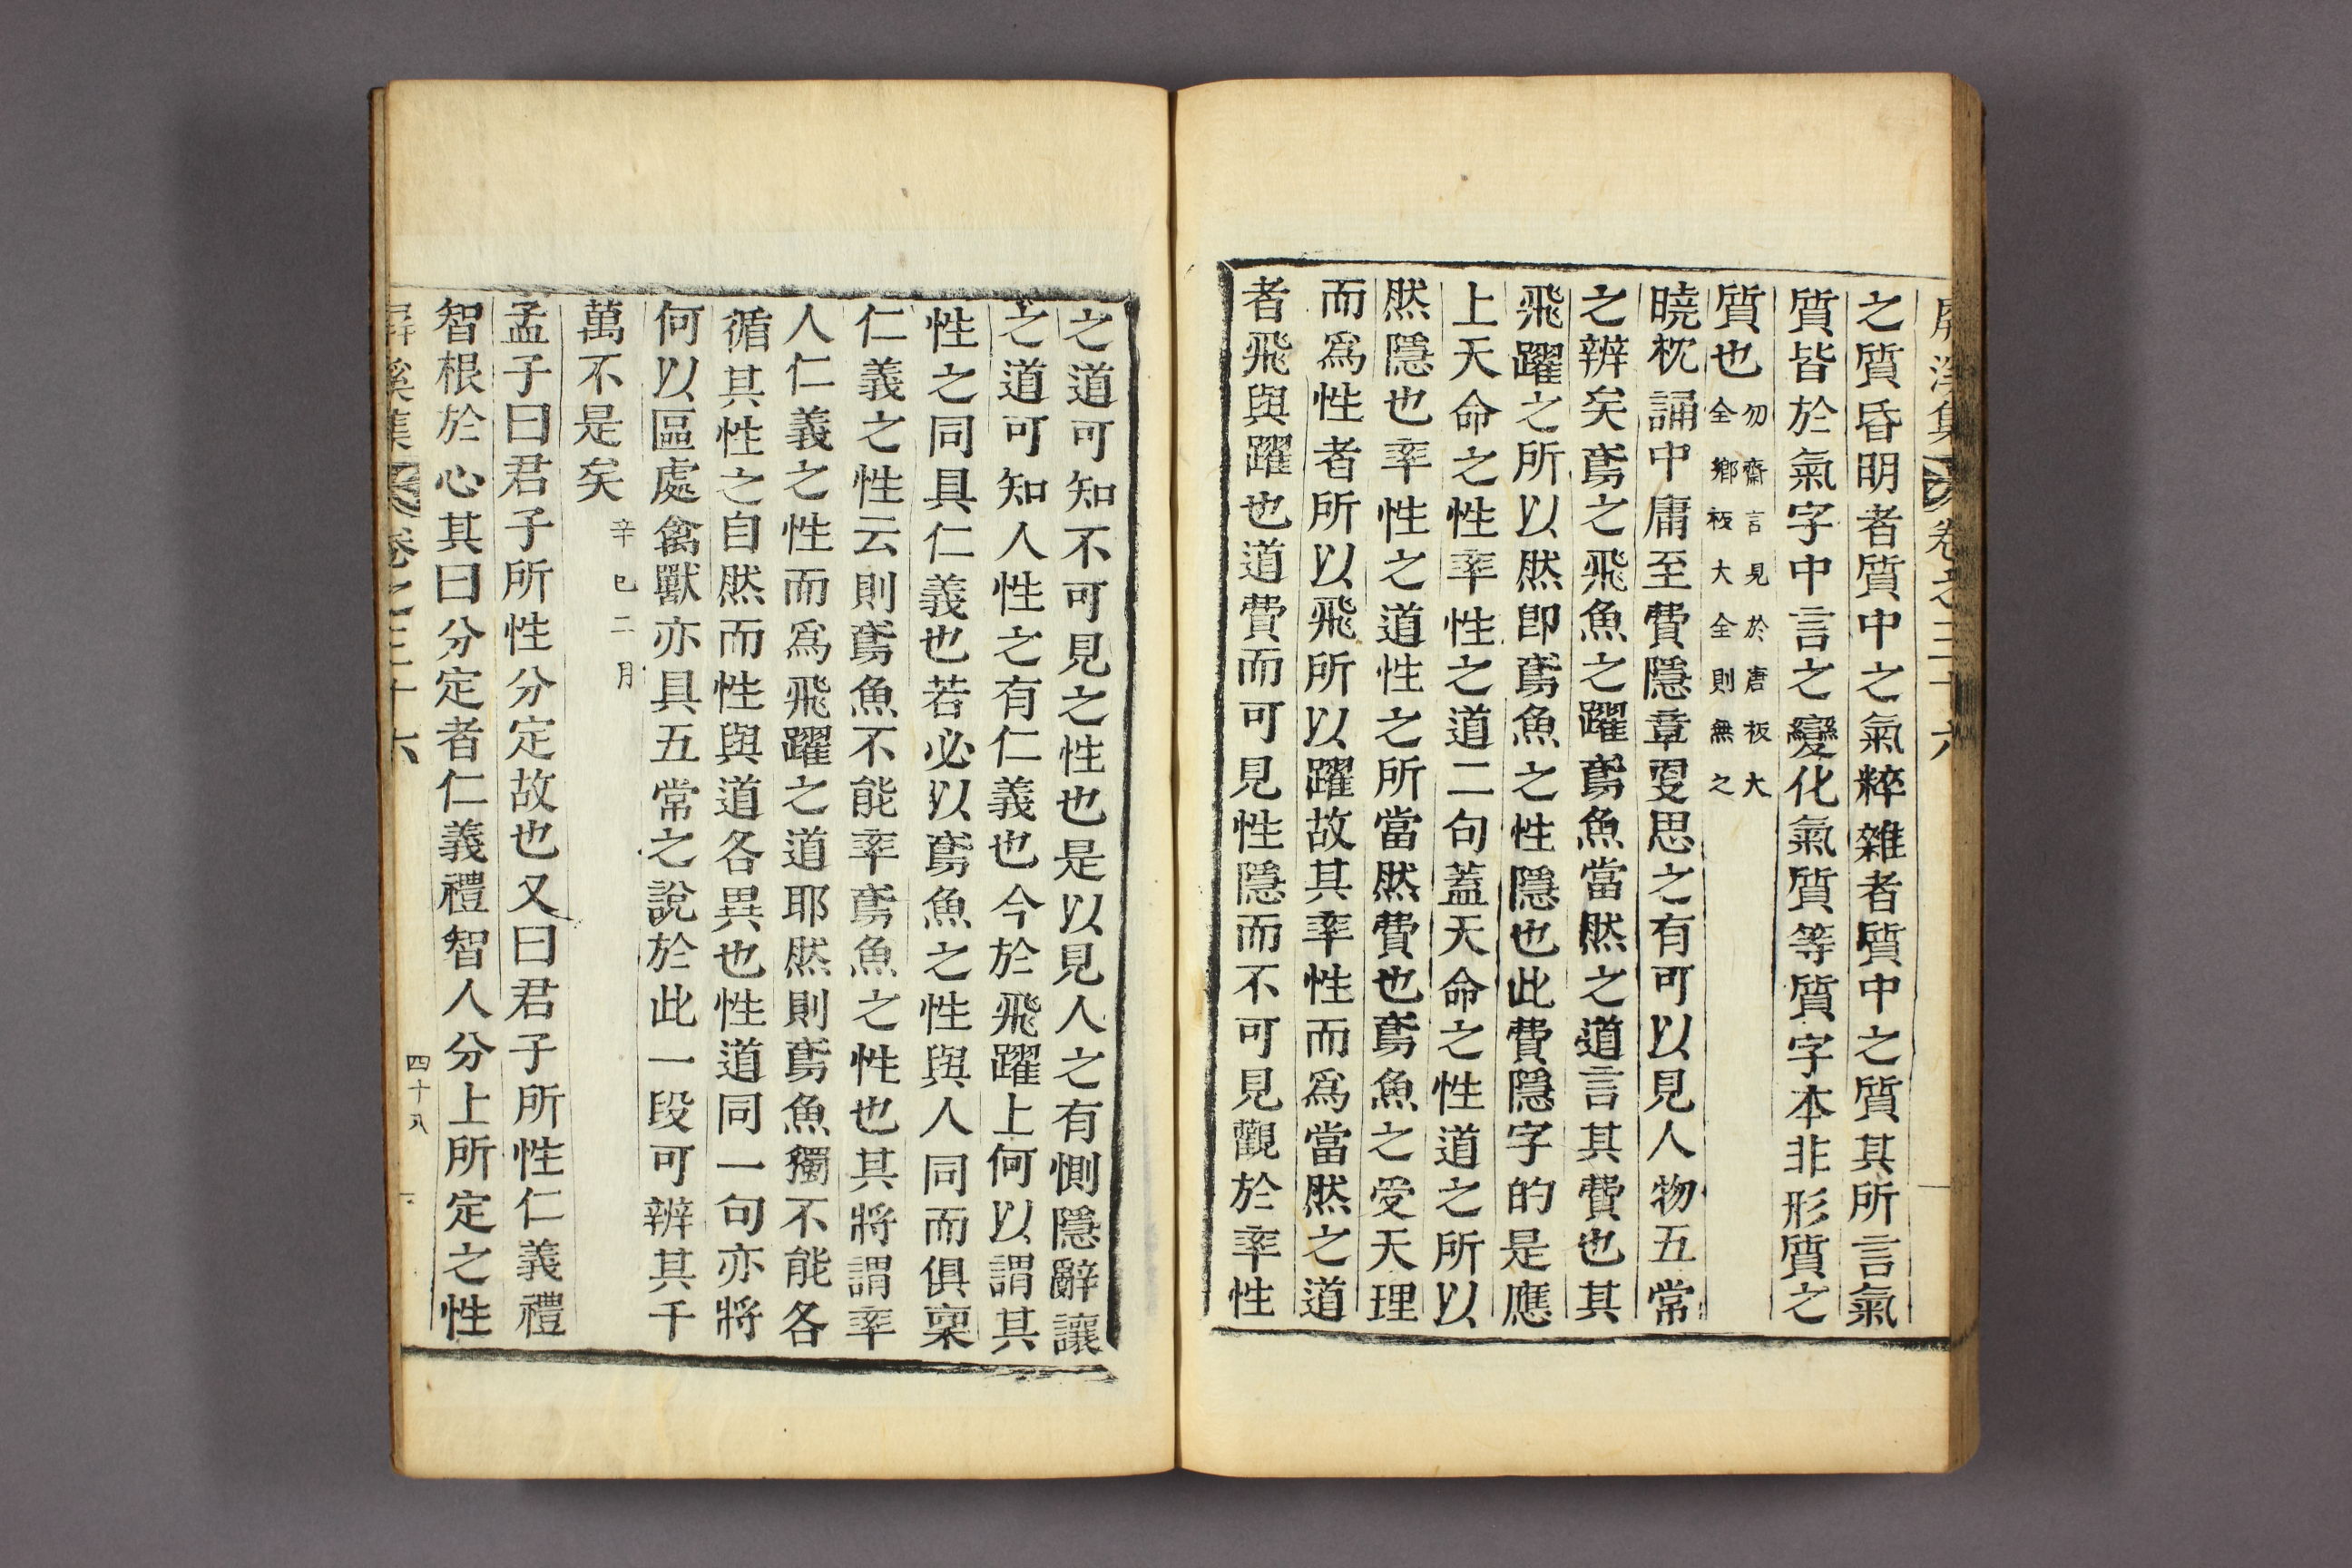 屛溪集 卷之三十六
之質昏明者質中之氣粹雜者質中之質其所言氣
質皆於氣字中言之變化氣質等質字本非形質之
質也勿齋言見於唐板大
全鄕板大全則無之
曉枕誦中庸至費隱章更思之有可以見人物五常
之辨矣鳶之飛魚之躍鳶魚當然之道言其費也其
飛躍之所以然卽鳶魚之性隱也此費隱字的是應
上天命之性率性之道二句蓋天命之性道之所以
然隱也率性之道性之所當然費也鳶魚之受天理
而爲性者所以飛所以躍故其率性而爲當然之道
者飛與躍也道費而可見性隱而不可見觀於率性
之道可知不可見之性也是以見人之有惻隱辭讓
之道可知人性之有仁義也今於飛躍上何以謂其
性之同具仁義也若必以鳶魚之性與人同而俱稟
仁義之性云則鳶魚不能率鳶魚之性也其將謂率
人仁義之性而爲飛躍之道耶然則鳶魚獨不能各
循其性之自然而性與道各異也性道同一句亦將
何以區處禽獸亦具五常之說於此一段可辨其千
萬不是矣辛巳二月
孟子曰君子所性分定故也又曰君子所性仁義禮
智根於心其曰分定者仁義禮智人分上所定之性
屛溪集 卷之三十六 四十八